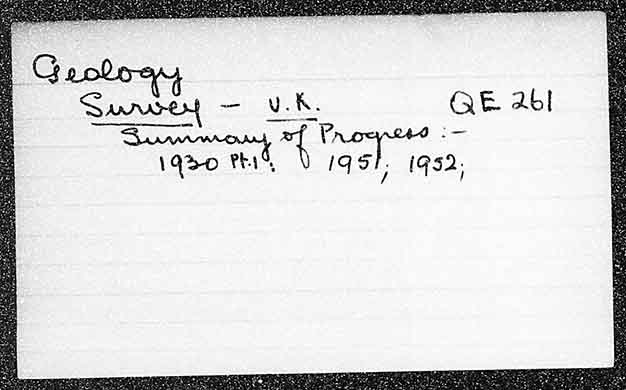 Geology
Survey - U.K. QE 261
Summary of Progress :-
1930 Pt.1; 1951; 1952;